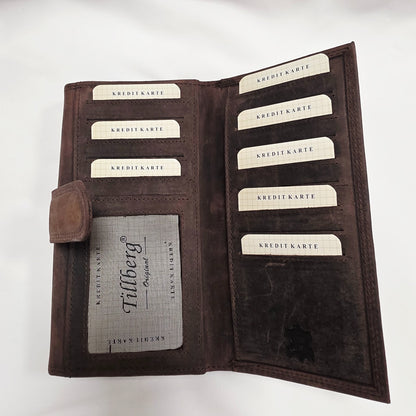 KREDIT KARTE
KREDIT KARTE
KREDIT KARTE
KREDIT KARTE
KREDIT KARTE
KREDIT KARTE
KREDIT KARTE
KREDIT KARTE
KREDITKARTE
Tillberg®
Original
KREDITKARTE
KREDITKARTE